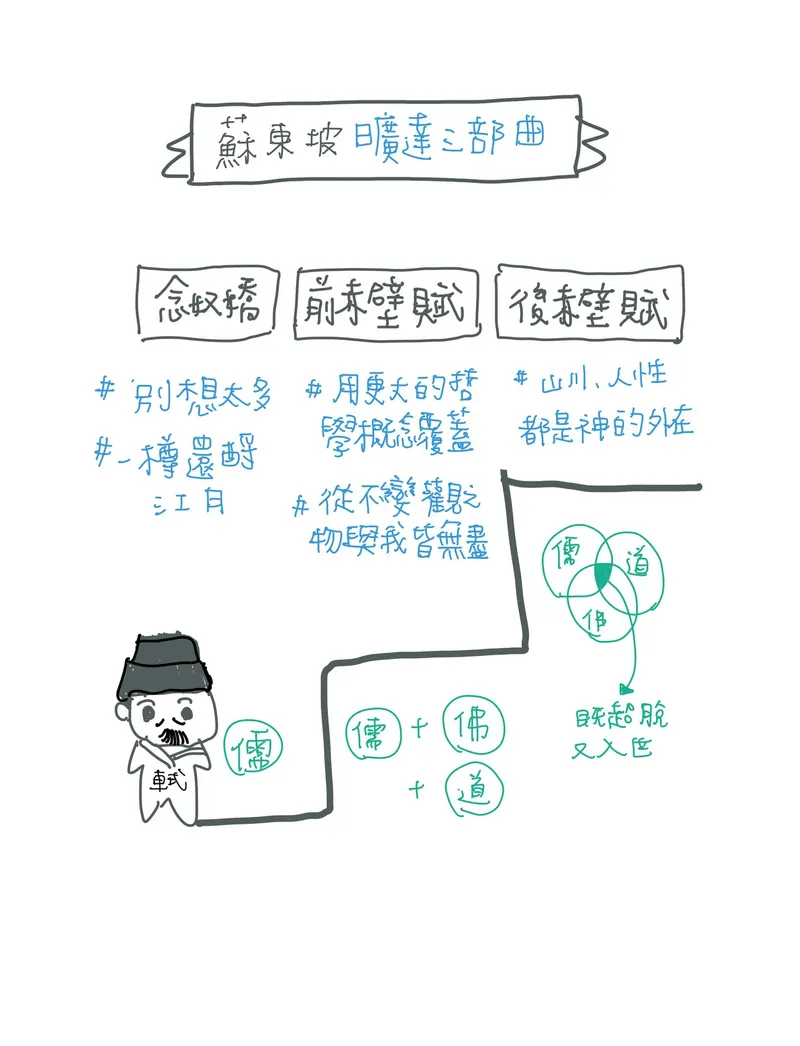 蘇東坡曠達三部曲
念奴嬌
前赤壁賦
後赤壁賦
# 別想太多
# 一樽還酹
江月
# 用更大的哲
學概念覆蓋
# 從不變觀之
物與我皆無盡
# 山川、人性
都是神的外在
軾
儒
儒 + 佛
+ 道
儒
道
佛
既超脫
又入世